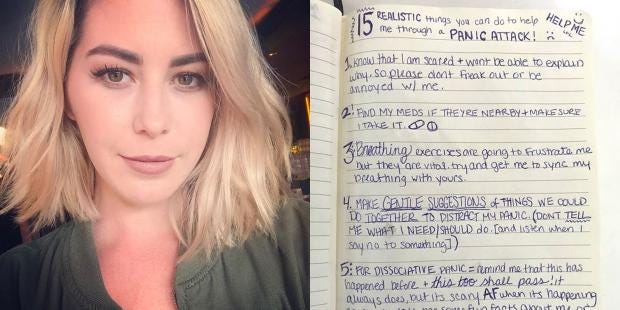 15 REALISTIC things you can do to help HELP ME
me through a PANIC ATTACK!
1. know that I am scared + wont be able to explain
why, so please dont freak out or be
annoyed w/ me.
2. FIND MY MEDS IF THEYRE NEARBY + MAKE SURE
I TAKE IT.
3. Breathing exercises are going to frustrate me
but they are vital. try and get me to sync my
breathing with yours.
4. MAKE GENTLE SUGGESTIONS of THINGS WE COULD
DO TOGETHER TO DISTRACT MY PANIC. (DONT TELL
ME WHAT I NEED/SHOULD do. [and listen when I
say no to something])
5. FOR DISSOCIATIVE PANIC = remind me that this has
happened before + this too shall pass! it
always does, but its scary AF when its happening
fun facts about me or